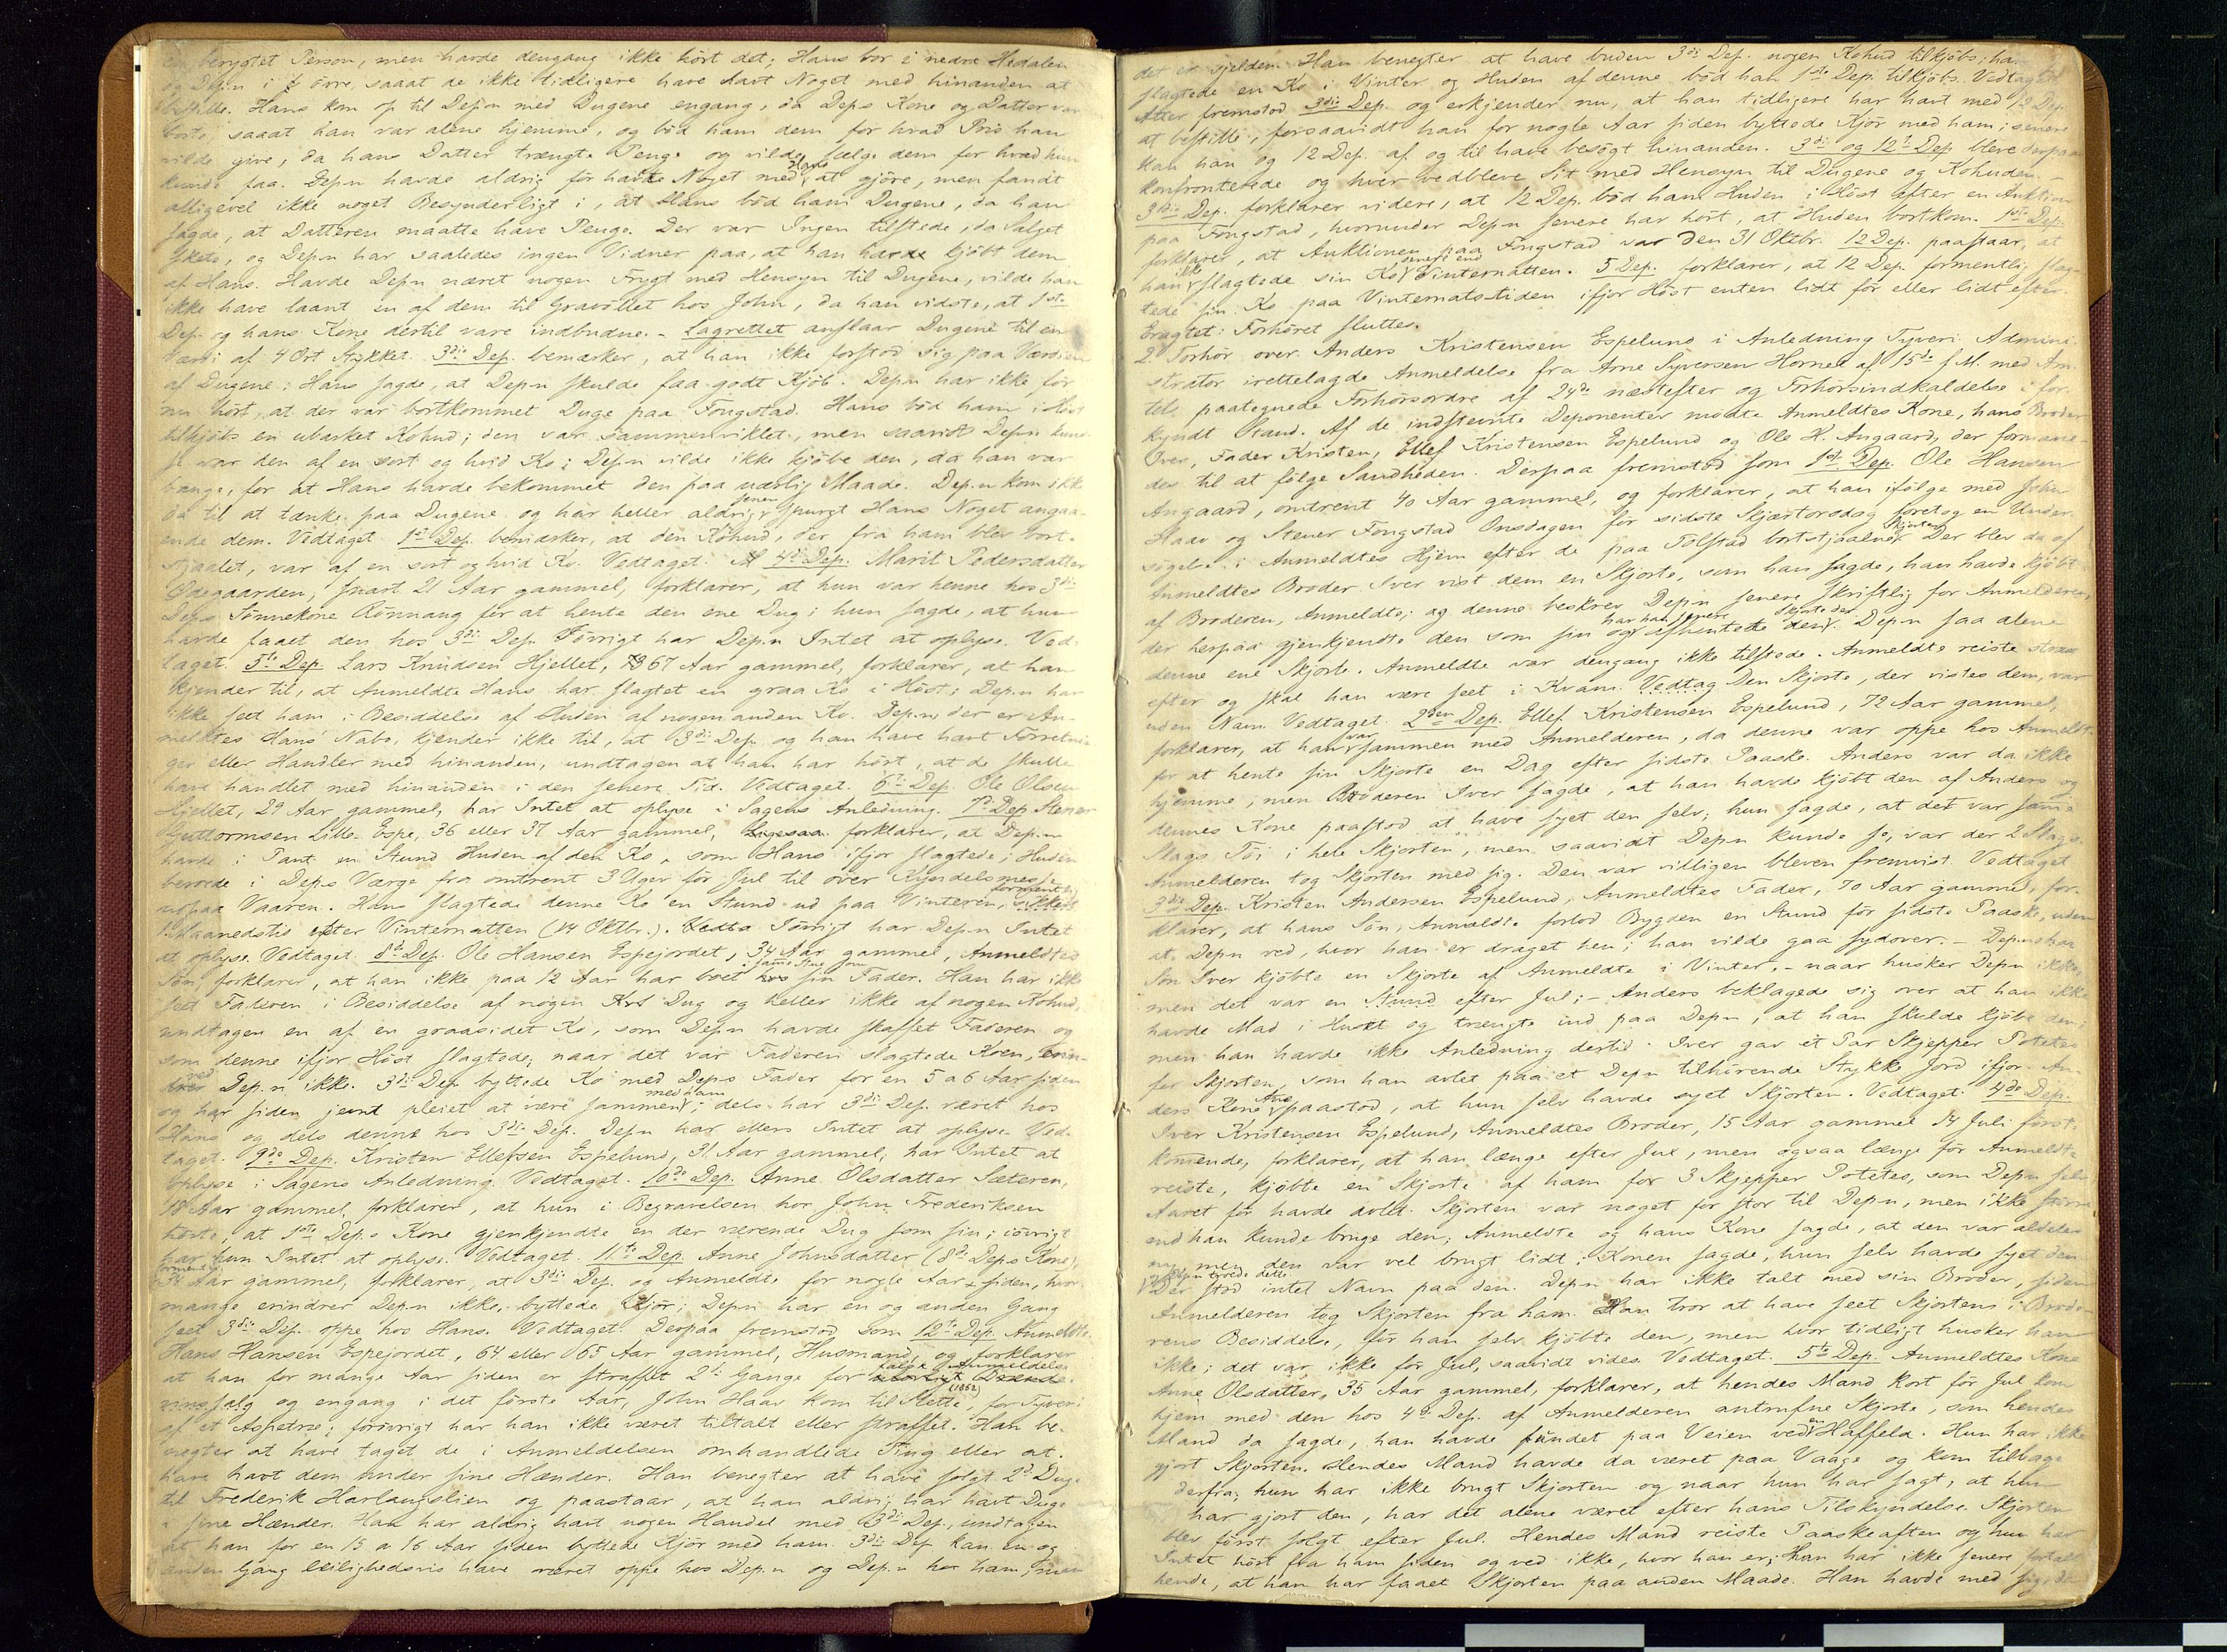 berygtet Person, men havde dengang ikke hørt det; Hans bor i nedre Hedalen
og Depn i øvre, saaat de ikke tidligere have havt Noget med hinanden at
bestille. Hans kom op til Depn med Dugene engang, da Deps Kone og Datter var
borte, saaat han var alene hjemme, og bød ham dem for hvad Pris han
vilde give, da hans Datter trængte Penge og vilde sælge dem for hvad hun
kunde faa. Depn havde aldrig før havt Noget med Hans at gjöre, men fandt
alligevel ikke noget Besynderligt i, at Hans bød ham Dugene, da han
sagde, at Datteren maatte have Penge. Der var Ingen tilstede, da Salget
skete, og Depn har saaledes ingen Vidner paa, at han har kjöbt dem
af Hans. Havde Depn næret nogen Frygt med Hensyn til Dugene, vilde han
ikke have laant en af dem til Gravøllet hos John, da han vidste, at 1ste
Dep. og hans Kone dertil vare indbudne. - Lagrettet anslaar Dugene til en
Værdi af 4 Ort Stykket. 3die Dep. bemærker, at han ikke forstod sig paa Værdien
af Dugene; Hans sagde, at Depn skulde faa godt Kjöb. Depn har ikke før
nu hørt, at der var bortkommet Duge paa Fongstad. Hans bød ham i Høst
tilkjöbs en ubarket Kohud; den var sammenviklet, men saavidt Depn kunde
se var den af en sort og hvid Ko; Depn vilde ikke kjöbe den, da han var
bange, for at Hans havde bekommet den paa uærlig Maade. Depn kom ikke
da til at tænke paa Dugene og har heller aldrig senere spurgt Hans Noget angaa-
ende dem. Vedtaget. 1ste Dep. bemærker, at den Kohud, der fra ham blev bort-
stjaalet, var af en sort og hvid Ko. Vedtaget. 4de Dep. Marit Pedersdatter
Ødegaarden, snart 21 Aar gammel, forklarer, at hun var henne hos 3die
Deps Sønnekone Rönnaug for at hente den ene Dug; hun sagde, at hun
havde faaet den hos 3die Dep. Forøvrigt har Depn Intet at oplyse. Ved-
taget. 5te Dep. Lars Knudsen Hjellet, 67 Aar gammel, forklarer, at han
kjender til, at Anmeldte Hans har slagtet en graa Ko i Høst; Depn har
ikke seet ham i Besiddelse af Huden af nogen anden Ko. Depn, der er An-
meldtes Hans' Nabo, kjender ikke til, at 3die Dep. og han have havt Forretnin-
ger eller Handler med hinanden, undtagen at han har hørt, at de skulle
have handlet med hinanden i den senere Tid. Vedtaget. 6te Dep. Ole Olsen
Hjellet, 29 Aar gammel, har Intet at oplyse i Sagens Anledning. 7de Dep. Stener
Guttormsen Lille-Espe, 36 eller 37 Aar gammel, forklarer, at Depn
havde i Pant en Stund Huden af den Ko, som Hans ifjor slagtede; Huden
beroede i Deps Værge fra omtrent 3 Uger før Jul til over Kyndelsmesse
ud paa Vaaren. Hans slagtede denne Ko en Stund ud paa Vinteren, formentlig
1 Maanedstid efter Vinternatten (14 Oktbr.). Iövrigt har Depn Intet
at oplyse. Vedtaget. 8de Dep. Ole Hansen Espejordet, 34 Aar gammel, Anmeldtes
Søn, forklarer, at han ikke paa 12 Aar har boet i samme Stue som sin Fader. Han har ikke
seet Faderen i Besiddelse af nogen Dug og heller ikke af nogen Kohud,
undtagen en af en graasidet Ko, som Depn havde skaffet Faderen og
som denne ifjor Høst slagtede; naar det var Faderen slagtede Koen,
ved Depn ikke. 3die Dep. byttede Ko med Deps Fader for en 5 a 6 Aar siden
og har siden jevnt pleiet at være sammen med ham; dels har 3die Dep. været hos
Hans og dels denne hos 3die Dep. Depn har ellers Intet at oplyse. Ved-
taget. 9de Dep. Kristen Ellefsen Espelund, 31 Aar gammel, har Intet at
oplyse i Sagens Anledning. Vedtaget. 10de Dep. Anne Olsdatter Sæteren,
18 Aar gammel, forklarer, at hun i Begravelsen hos John Frederiksen
hørte, at 1ste Deps Kone gjenkjendte en der værende Dug som sin; iövrigt
har hun Intet at oplyse. Vedtaget. 11te Dep. Anne Johnsdatter (8de Deps Kone),
formentlig 34 Aar gammel, forklarer, at 3die Dep. og Anmeldte for nogle Aar siden, hvor
mange erindrer Depn ikke, byttede Kjör; Depn har en og anden Gang
seet 3die Dep. oppe hos Hans. Vedtaget. Derpaa fremstod som 12te Dep. Anmeldte
Hans Hansen Espejordet, 64 eller 65 Aar gammel, Husmand, og forklarer
at han for mange Aar siden er straffet 2de Gange for
og engang i det første Aar, John Haav kom til Rette (1862), for Tyveri
af et Aspetræ; forøvrigt har han ikke været tiltalt eller straffet. Han be-
negter at have taget de i Anmeldelsen omhandlede Ting eller at
have havt dem under sine Hænder. Han benegter at have solgt 2de Duge
til Frederik Harlaugslien og paastaar, at han aldrig har havt Duge
i sine Hænder. Han har aldrig havt nogen Handel med 3die Dep., undtagen
at han for en 15 a 16 Aar siden byttede Kjör med ham. 3die Dep. kan en og
anden Gang leilighedsvis have været oppe hos Depn og Depn hos ham, men
det er sjelden. Han benegter at have buden 3die Dep. nogen Kohud tilkjöbs; han
slagtede en Ko i Vinter og Huden af denne bød han 1ste Dep. tilkjöbs. Vedtaget.
Atter fremstod 3die Dep. og erkjender nu, at han tidligere har havt med 12 Dep.
at bestille, forsaavidt han for nogle Aar siden byttede Kjör med ham; senere
kan han og 12 Dep. af og til have besøgt hinanden. 3die og 12te Dep. bleve derpaa
konfronterede og hver vedbleve Sit med Hensyn til Dugene og Kohuden. -
3die Dep. forklarer videre, at 12 Dep. bød ham Huden i Høst efter en Auktion
paa Fongstad, hvorunder Depn senere har hørt, at Huden bortkom. 1ste Dep.
forklarer, at Auktionen paa Fongstad var den 31 Oktbr. 12 Dep. paastaar, at
han ikke slagtede sin Ko senere end Vinternatten. 5 Dep. forklarer, at 12 Dep. formentlig slag-
tede sin Ko paa Vinternatstiden ifjor Høst enten lidt før eller lidt efter.
Eragtet: Forhøret sluttes.
2. Forhör over Anders Kristensen Espelund i Anledning Tyveri. Admini-
strator irettelagde Anmeldelse fra Arne Syversen Hornel af 15de f. M. med Am-
tets paategnede Forhørsordre af 24de næstefter og Forhørsindkaldelse i for-
kyndt Stand. Af de indstevnte Deponenter mødte Anmeldtes Kone, hans Broder
Iver, Fader Kristen, Ellef Kristensen Espelund og Ole H. Angaard, der formane-
des til at følge Sandheden. Derpaa fremstod som 1ste Dep. Ole Hansen
Angaard, omtrent 40 Aar gammel, og forklarer, at han ifølge med John
Haav og Stener Fongstad Onsdagen før sidste Skjærtorsdag foretog en Under-
søgelse i Anmeldtes Hjem efter de paa Tolstad bortstjaalne Skjorter. Der blev da af
Anmeldtes Broder Iver vist dem en Skjorte, som han sagde, han havde kjöbt
af Broderen, Anmeldte; og denne beskrev Depn senere skriftlig for Anmelderen,
der herpaa gjenkjendte den som sin og har han senere afhentet den Skjorte der. Depn saa alene
denne ene Skjorte. Anmeldte var dengang ikke tilstede. Anmeldte reiste strax
efter og skal han være seet i Kvam. Vedtag Den Skjorte, der vistes dem, var
uden Navn. Vedtaget. 2den Dep. Ellef Kristensen Espelund, 72 Aar gammel,
forklarer, at han var sammen med Anmelderen, da denne var oppe hos Anmeldte
for at hente sin Skjorte en Dag efter sidste Paaske. Anders var da ikke
hjemme, men Broderen Iver sagde, at han havde kjöbt den af Anders og
dennes Kone paastod at have syet den selv; hun sagde, at det var samme
Slags Töi i hele Skjorten, men saavidt Depn kunde se, var der 2 Slags.
Anmelderen tog Skjorten med sig. Den var villigen bleven fremvist. Vedtaget.
3die Dep. Kristen Andersen Espelund, Anmeldtes Fader, 70 Aar gammel, for-
klarer, at hans Søn, Anmeldte forlod Bygden en Stund før sidste Paaske, uden
at Depn ved, hvor han er draget hen; han vilde gaa sydover. - Depns
Søn Iver kjöbte en Skjorte af Anmeldte i Vinter, - naar husker Depn ikke,
men det var en Stund efter Jul; - Anders beklagede sig over at han ikke
havde Mad i Huset og trængte ind paa Depn, at han skulde kjöbe den;
men han havde ikke Anledning dertil. Iver gav et Par Skjepper Potetes
for Skjorten, som han avlet paa et Depn tilhørende Stykke Jord ifjor. An-
ders Kone Anne paastod, at hun selv havde syet Skjorten. Vedtaget. 4de Dep.
Iver Kristensen Espelund, Anmeldtes Broder, 15 Aar gammel 14 Juli først-
kommende, forklarer, at han længe efter Jul, men ogsaa længe før Anmeldte
reiste, kjöbte en Skjorte af ham for 3 Skjepper Potetes, som Depn selv
Aaret før havde avlet. Skjorten var noget for stor til Depn, men ikke større
end han kunde bruge den; Anmeldte og hans Kone sagde, at den var aldeles
ny, men den var vel brugt lidt; Konen sagde, hun selv havde syet den
Depn troede dette. Der stod intet Navn paa den. Depn har ikke talt med sin Broder, siden
Anmelderen tog Skjorten fra ham. Han tror at have seet Skjorten i Brode-
rens Besiddelse, før han selv kjöbte den, men hvor tidligt husker han
ikke; det var ikke før Jul, saavidt vides. Vedtaget. 5te Dep. Anmeldtes Kone
Anne Olsdatter, 35 Aar gammel, forklarer, at hendes Mand kort før Jul kom
hjem med den hos 4de Dep. af Anmelderen antrufne Skjorte, som hendes
Mand da sagde, han havde fundet paa Veien ved Haffeld. Hun har ikke
gjort Skjorten. Hendes Mand havde da været paa Vaage og kom tilbage
derfra; hun har ikke brugt Skjorten og naar hun har sagt, at hun
har gjort den, har det alene været efter hans Tilskyndelse. Skjorten
blev først solgt efter Jul. Hendes Mand reiste Paaskeaften og hun har
Intet hørt fra ham siden og ved ikke, hvor han er; Han har ikke senere fortalt
hende, at han har faaet Skjorten paa anden Maade. Han havde med sig